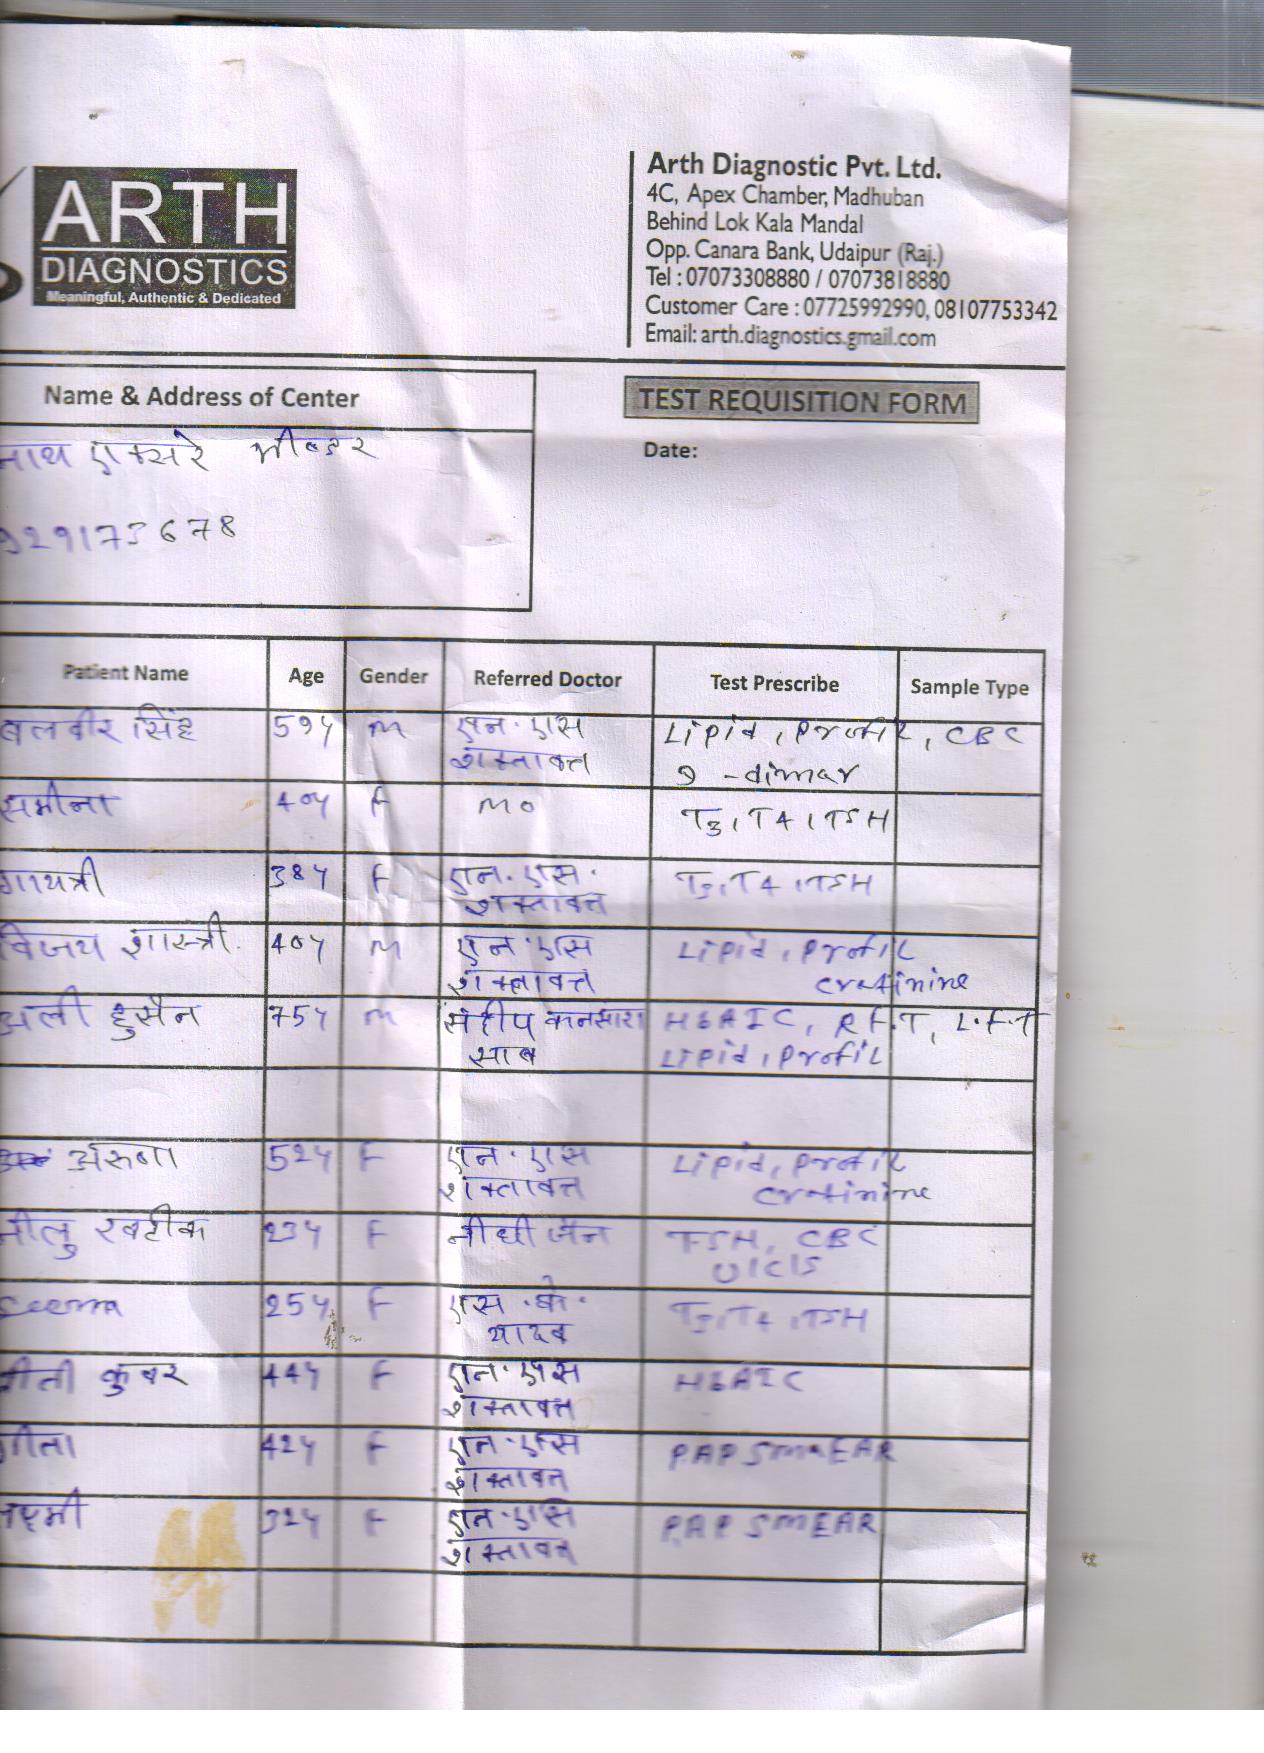 ARTH
DIAGNOSTICS
Meaningful, Authentic & Dedicated
Arth Diagnostic Pvt. Ltd.
4C, Apex Chamber, Madhuban
Behind Lok Kala Mandal
Opp. Canara Bank, Udaipur (Raj.)
Tel : 07073308880 / 07073818880
Customer Care : 07725992990, 08107753342
Email: arth.diagnostics.gmail.com
Name & Address of Center
TEST REQUISITION FORM
नाथ एक्सरे भीण्डर
Date:
929173678
Patient Name Age Gender Referred Doctor Test Prescribe Sample Type
बलवीर सिंह 59y M एन.एस Lipid, Profil, CBC
शक्तावत्त D-dimar
समीना 40y F MO T3, T4, TSH
गायत्री 38y F एन.एस. T3, T4, TSH
शक्तावत्त
विजय शास्त्री. 40y M एन.एस Lipid, Profil
शक्तावत्त cratinine
अली हुसैन 75y M संदीप कानसारा HbAIC, R.F.T, L.F.T
साब Lipid, Profil
अरुणा 52y F एन.एस Lipid, Profil
शक्तावत्त cratinine
नीलु खटीक 23y F नीधी जैन TSH, CBC
U/C/S
Seema 25y F एस.के. T3, T4, TSH
यादव
कुंवर 44y F एन.एस HbAIC
शक्तावत्त
गीता 42y F एन.एस PAP SmEAR
शक्तावत्त
32y F एन.एस PAP SMEAR
शक्तावत्त